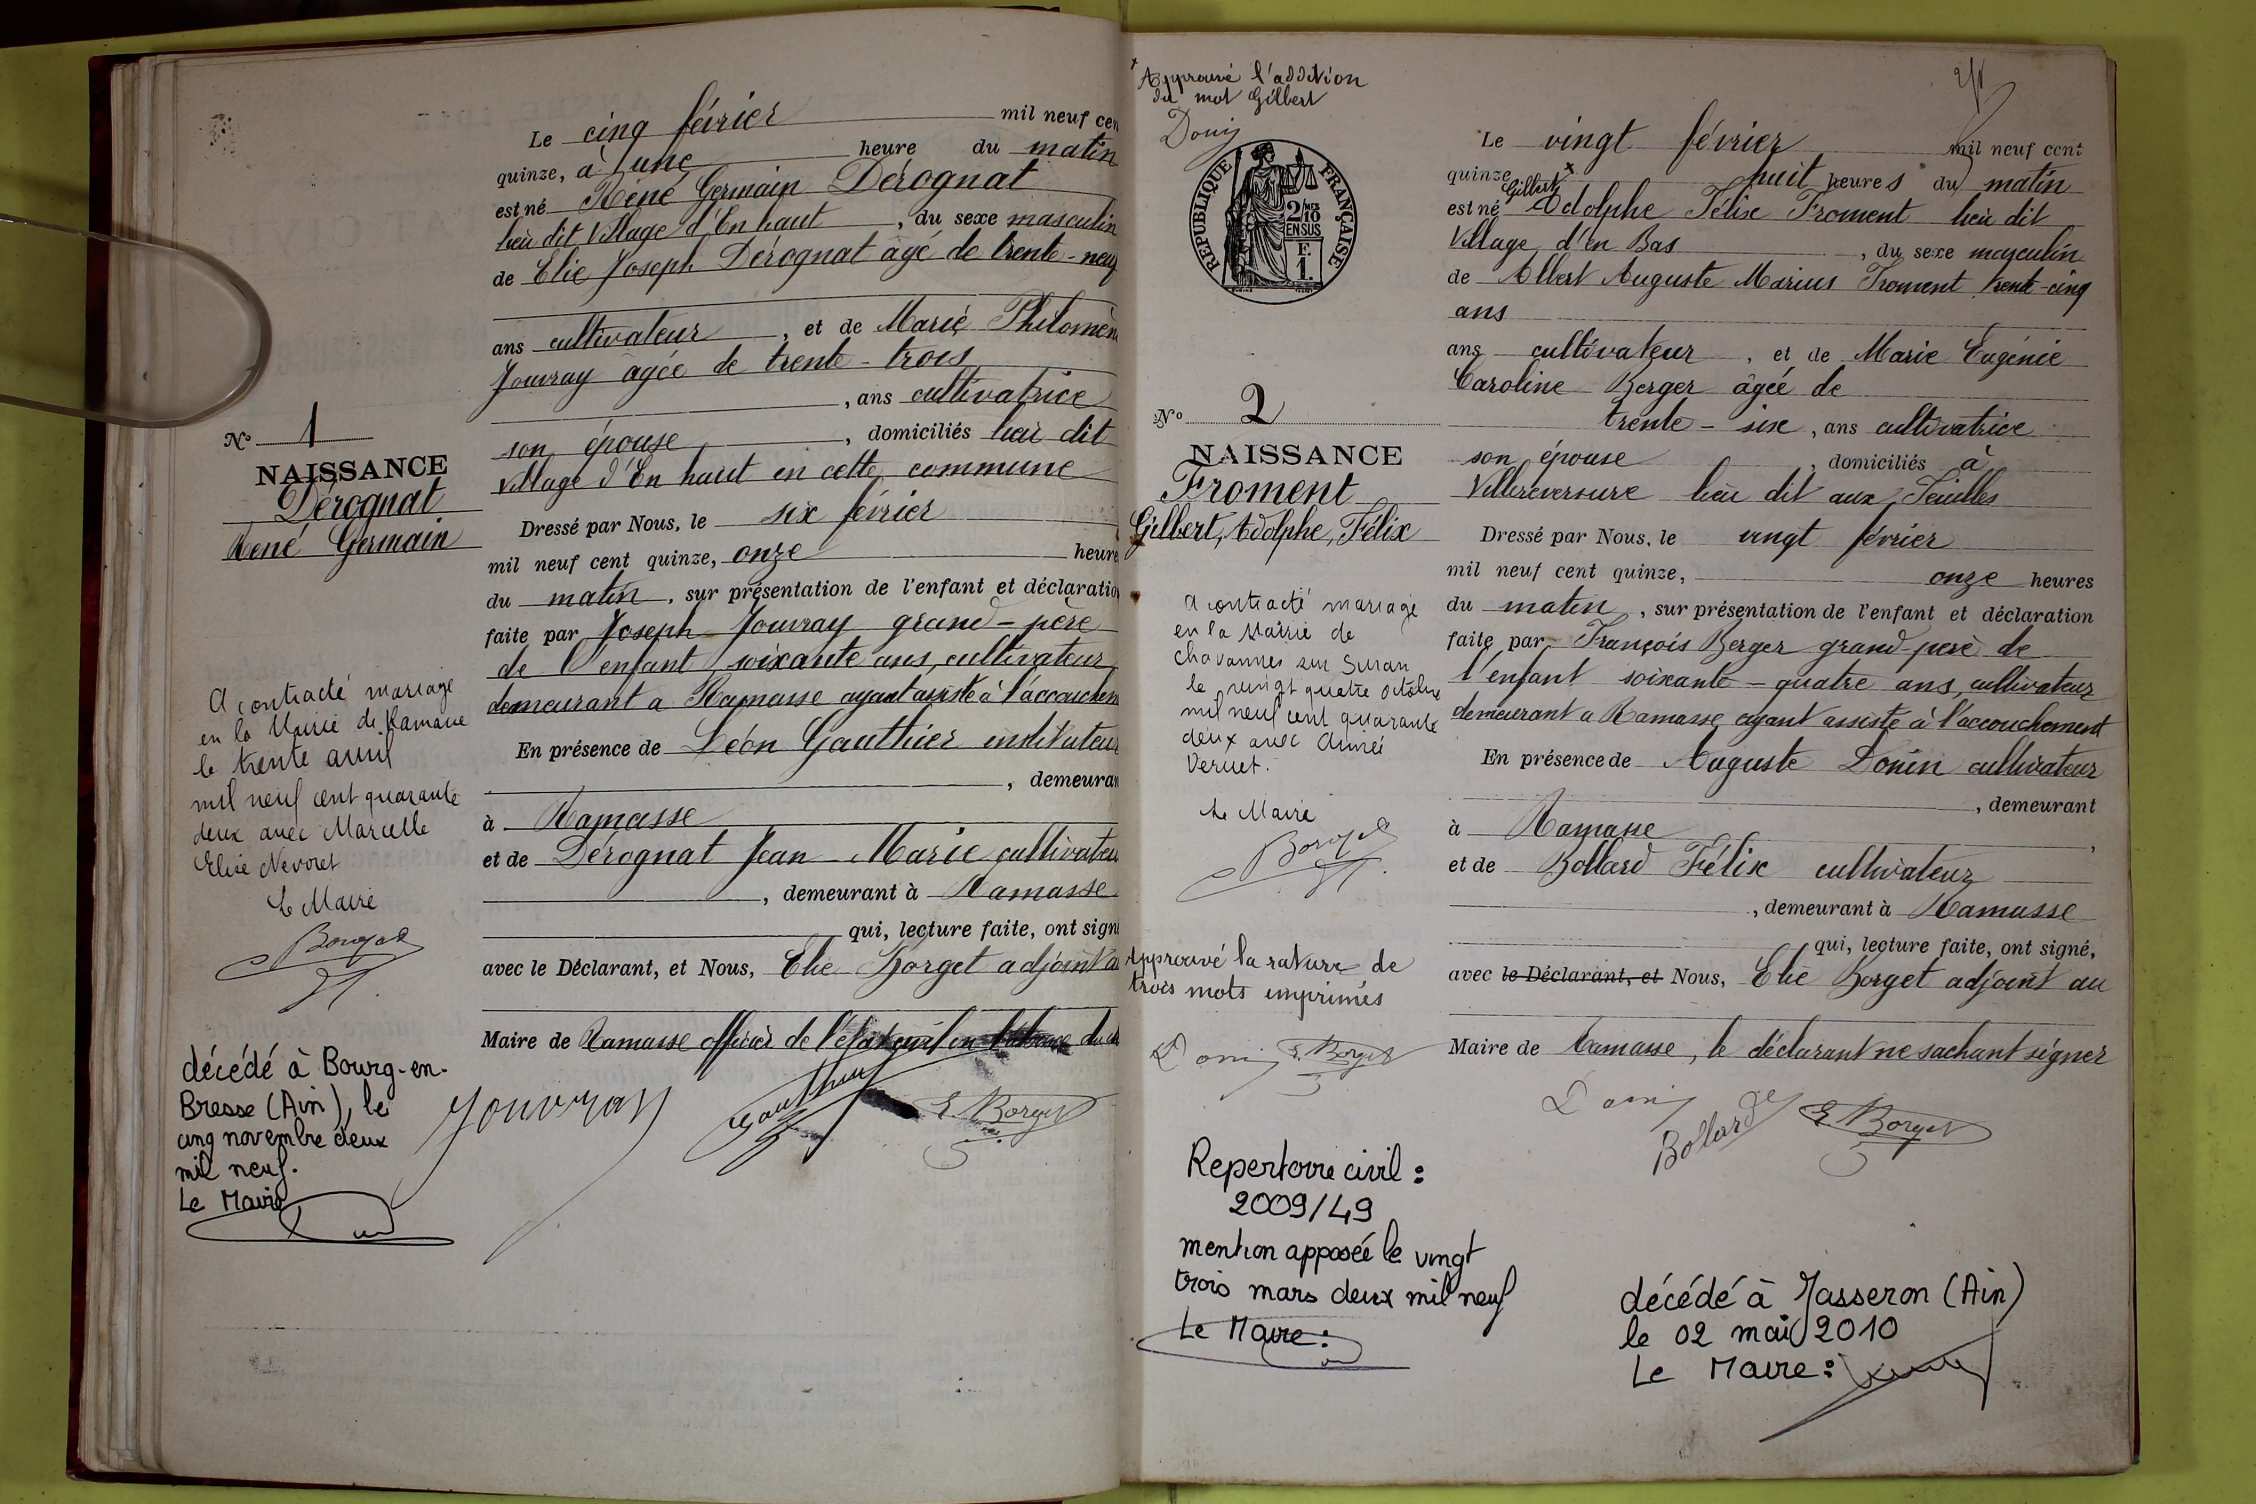 Le cinq février mil neuf cen
quinze, à une heure du matin
est né René Germain Dérognat
lieu dit Village d'En haut , du sexe masculin
de Elie Joseph Dérognat âgé de trente-neuf
ans cultivateur , et de Marie Philomèn
Jouvray âgée de trente-trois
, ans cultivatrice
son épouse , domiciliés lieu dit
Village d'En haut en cette commune
Dressé par Nous, le six février
mil neuf cent quinze, onze heure
du matin , sur présentation de l'enfant et déclaratio
faite par Joseph Jouvray grand-père
de l'enfant soixante ans, cultivateur
demeurant a Ramasse ayant assisté à l'accouchem
En présence de Léon Gauthier instituteur
, demeuran
à Ramasse
et de Dérognat Jean Marie cultivateu
, demeurant à Ramasse
qui, lecture faite, ont sign
avec le Déclarant, et Nous, Elie Borget adjoint a
Maire de Ramasse officier de l'état civil en
Jouvray Gauthier E. Borget
No 1
NAISSANCE
Dérognat
René Germain
A contracté mariage
en la Mairie de Ramasse
le trente avril
mil neuf cent quarante
deux avec Marcelle
Elise Nevoret
Le Maire
décédé à Bourg-en-
Bresse (Ain), le
cinq novembre deux
mil neuf.
Le Maire
+ Approuvé l'addition
du mot Gilbert
Donin
REPUBLIQUE FRANÇAISE
2/10
EN SUS
F.
1.
No 2
NAISSANCE
Froment
Gilbert, Adolphe, Félix
A contracté mariage
en la Mairie de
Chavannes sur Suran
le vingt quatre octobre
mil neuf cent quarante
deux avec Aimée
Vernet.
Le Maire
Approuvé la rature de
trois mots imprimés
Donin E. Borget
Repertoire civil :
2009/49
mention apposée le vingt
trois mars deux mil neuf
Le Maire :
Le vingt février mil neuf cent
quinze huit heures du matin
Gilbert +
est né Adolphe Félix Froment lieu dit
Village d'en Bas , du sexe masculin
de Albert Auguste Marius Froment trente-cinq
ans
ans cultivateur , et de Marie Eugénie
Caroline Berger âgée de
trente-six , ans cultivatrice
son épouse , domiciliés à
Villereversure lieu dit aux
Dressé par Nous, le vingt février
mil neuf cent quinze, onze heures
du matin , sur présentation de l'enfant et déclaration
faite par François Berger grand-père de
l'enfant soixante-quatre ans, cultivateur
demeurant a Ramasse ayant assisté à l'accouchement
En présence de Auguste Donin cultivateur
, demeurant
à Ramasse ,
et de Bollard Félix cultivateur
, demeurant à Ramasse
qui, lecture faite, ont signé,
avec le Déclarant, et Nous, Elie Borget adjoint au
Maire de Ramasse, le déclarant ne sachant signer
Donin Bollard E. Borget
décédé à Jasseron (Ain)
le 02 mai 2010
Le Maire :